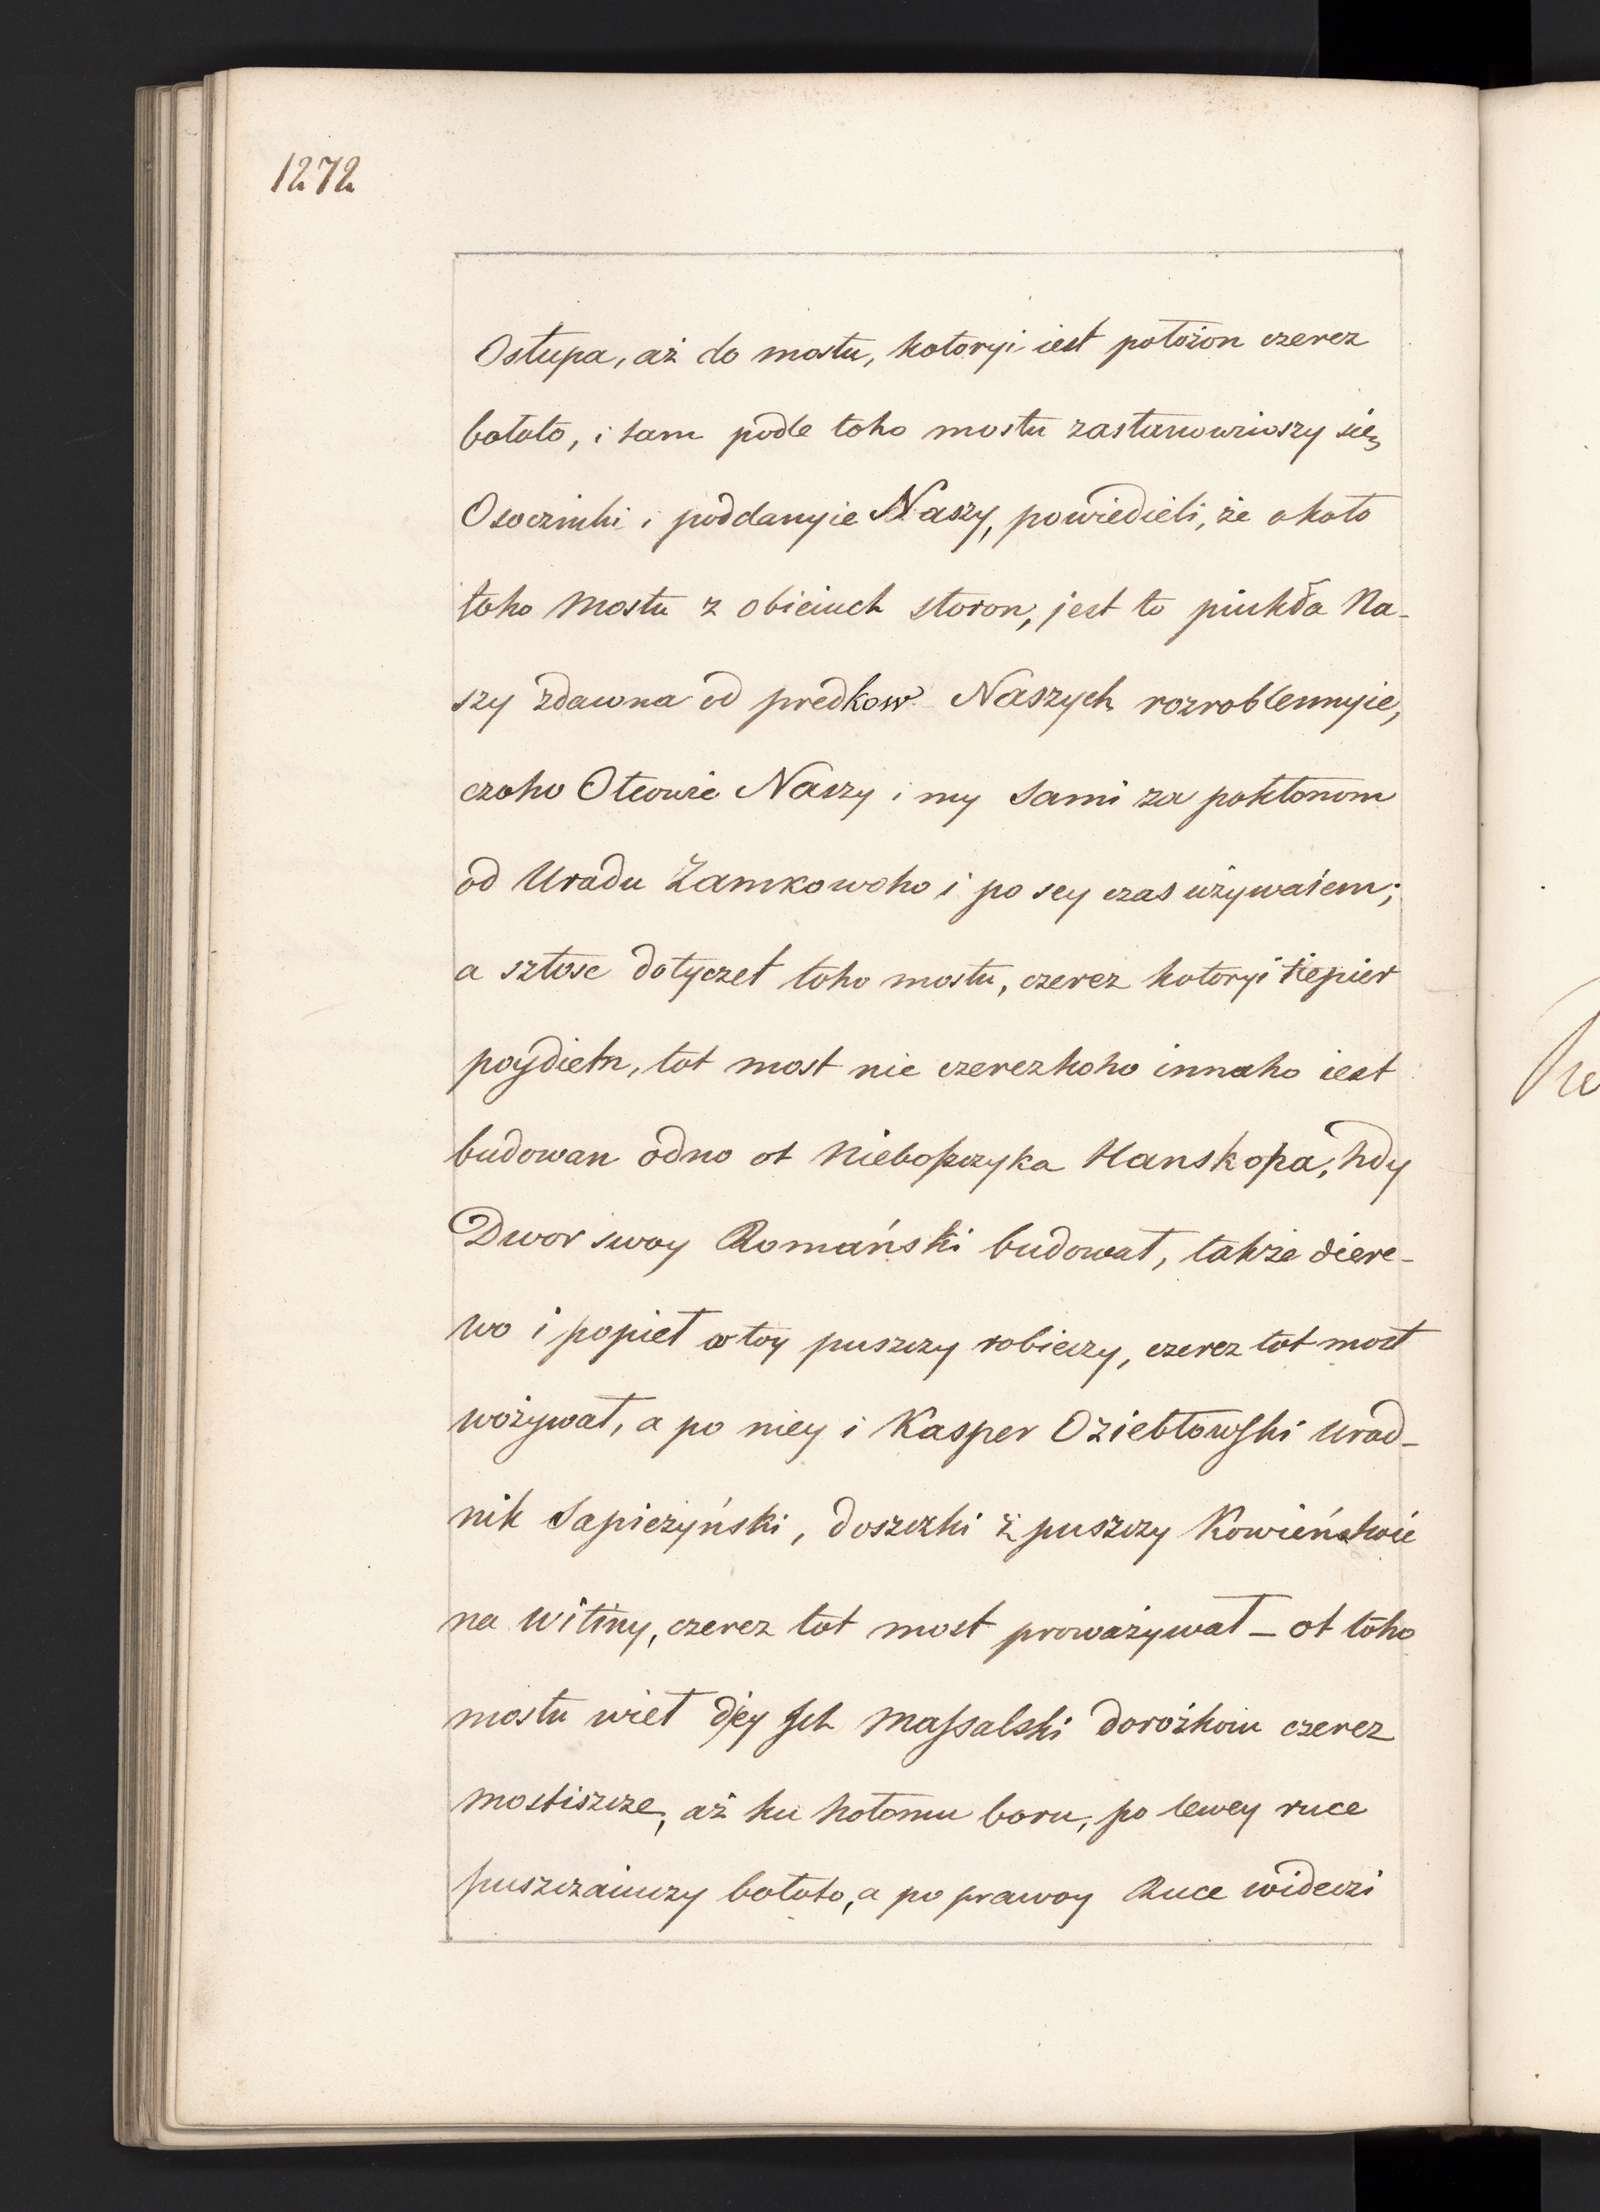 1272
Ostupa, aż do mostu, kotoryi iest położon czerez
bołoto, i tam podle toho mostu zastanowiwszy się,
Osoczniki i poddanyie Naszy, powiedieli, że około
toho Mostu z obieiuch storon, jest to piukła Na-
szy zdawna od predkow Naszych rozroblennyie,
czoho Otcowie Naszy i my sami za pokłonom
od Uradu Zamkowoho i po sey czas używaiem;
a sztosc dotyczet toho mostu, czerez kotoryi tiepier
poydietn, tot most nie czerez koho innaho iest
budowan odno ot Nieboszczyka Hanskopa, hdy
Dwor swoy Romański budował, także diere-
wo i popieł w toy puszczy robieczy, czerez tot most
wożywał, a po niey i Kasper Dziebłowski Urad-
nik Sapieżyński, doszczki z puszczy Kowieńskoie
na Witiny, czerez tot most proważywał – ot toho
mostu wieł diey Jch Massalski dorożkoiu czerez
Mostiszcze, aż ku hołomu boru, po lewey ruce
puszczaiuczy bołoto, a po prawoy Ruce wideczi